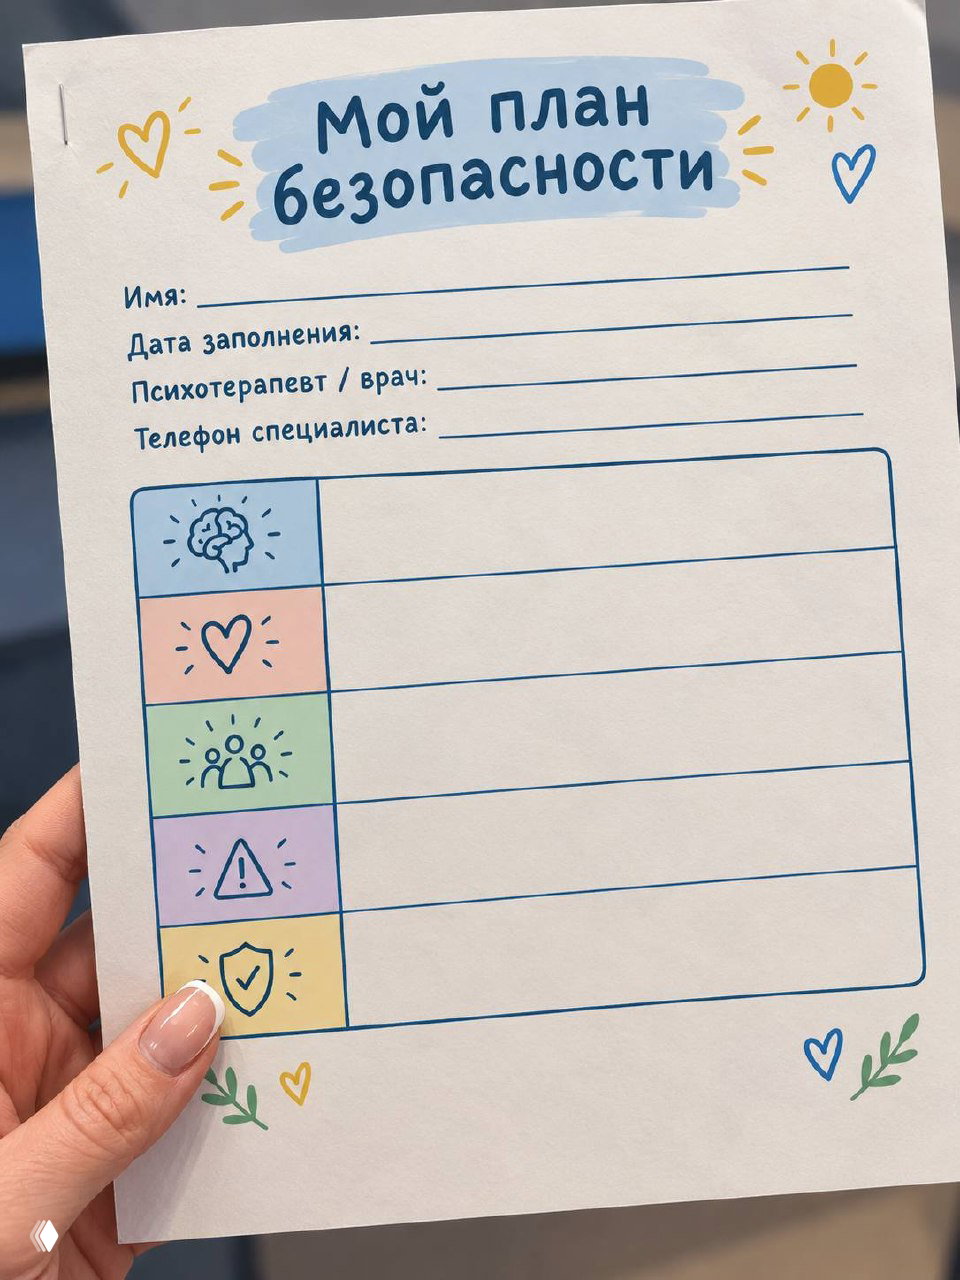 Мой план
безопасности
Имя:
Дата заполнения:
Психотерапевт / врач:
Телефон специалиста: